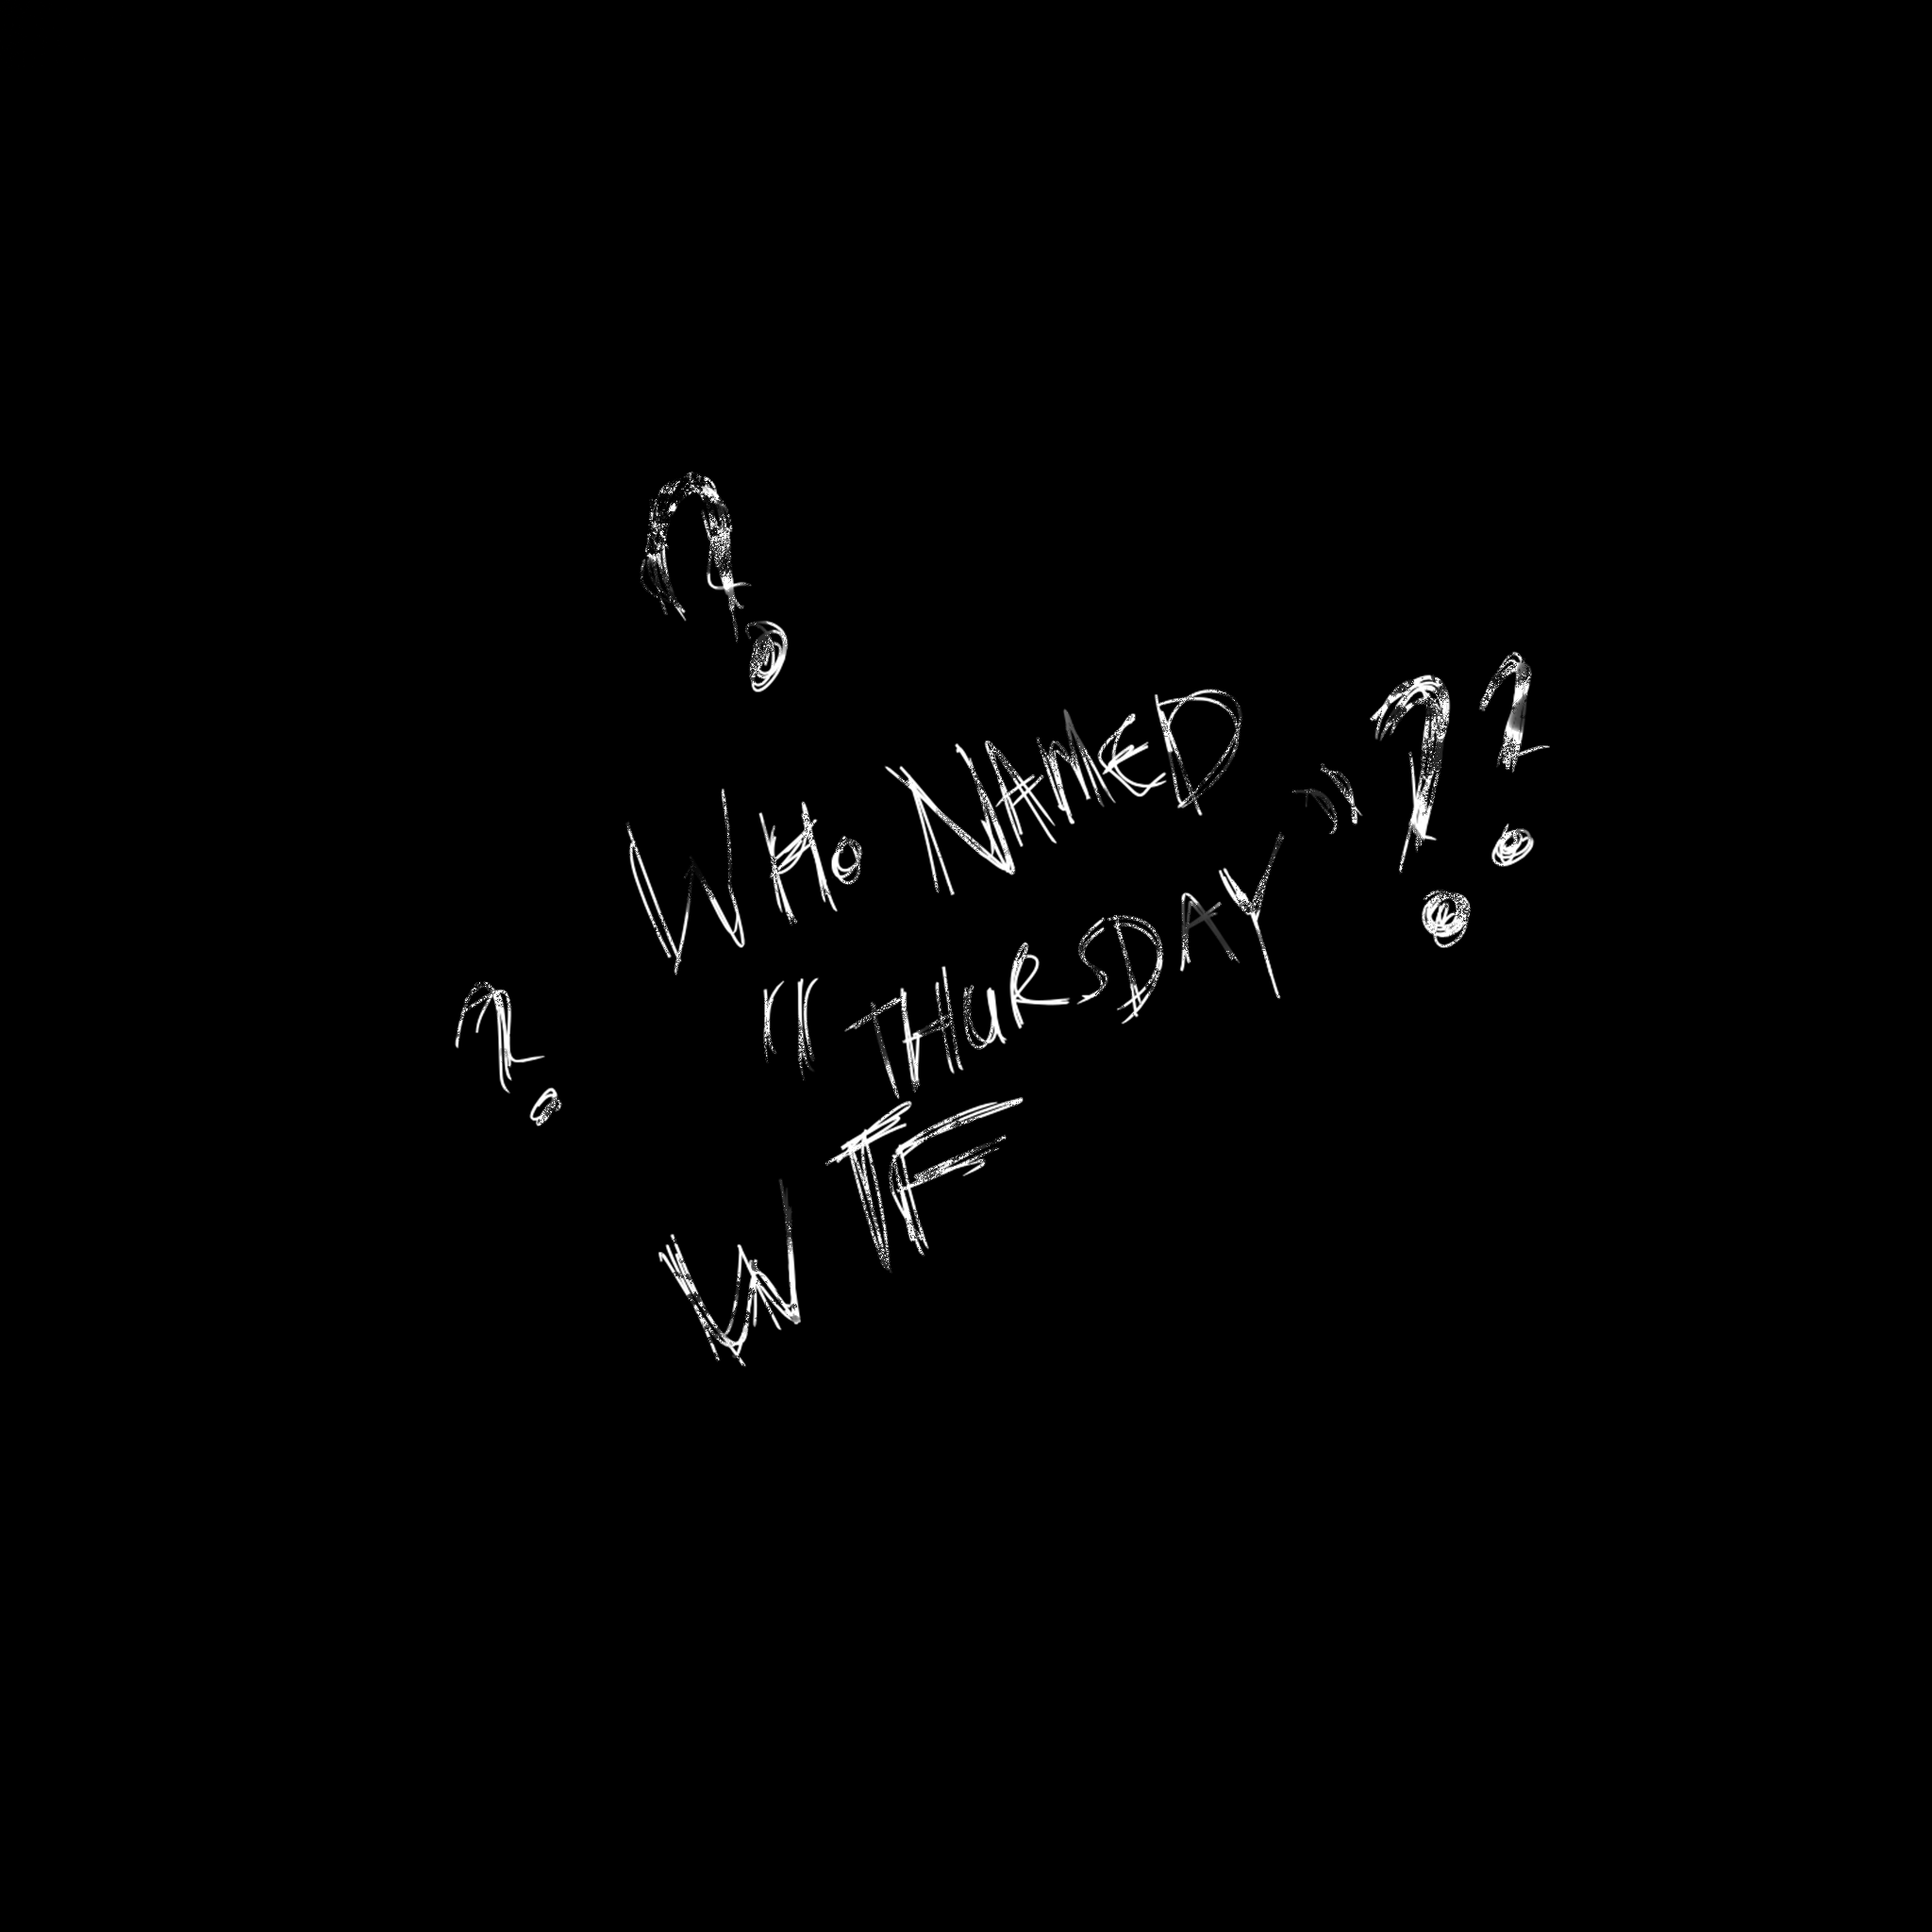 ?
WHo NAMED
"THURSDAY"??
?
WTF